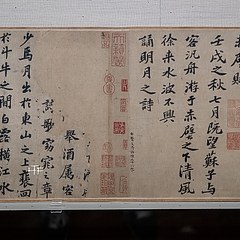 赤壁賦
壬戌之秋七月既望蘇子與
客汎舟游于赤壁之下清風
徐來水波不興
誦明月之詩
舉酒屬客
歌窈窕之章
少焉月出於東山之上裴回
於斗牛之間白露橫江水